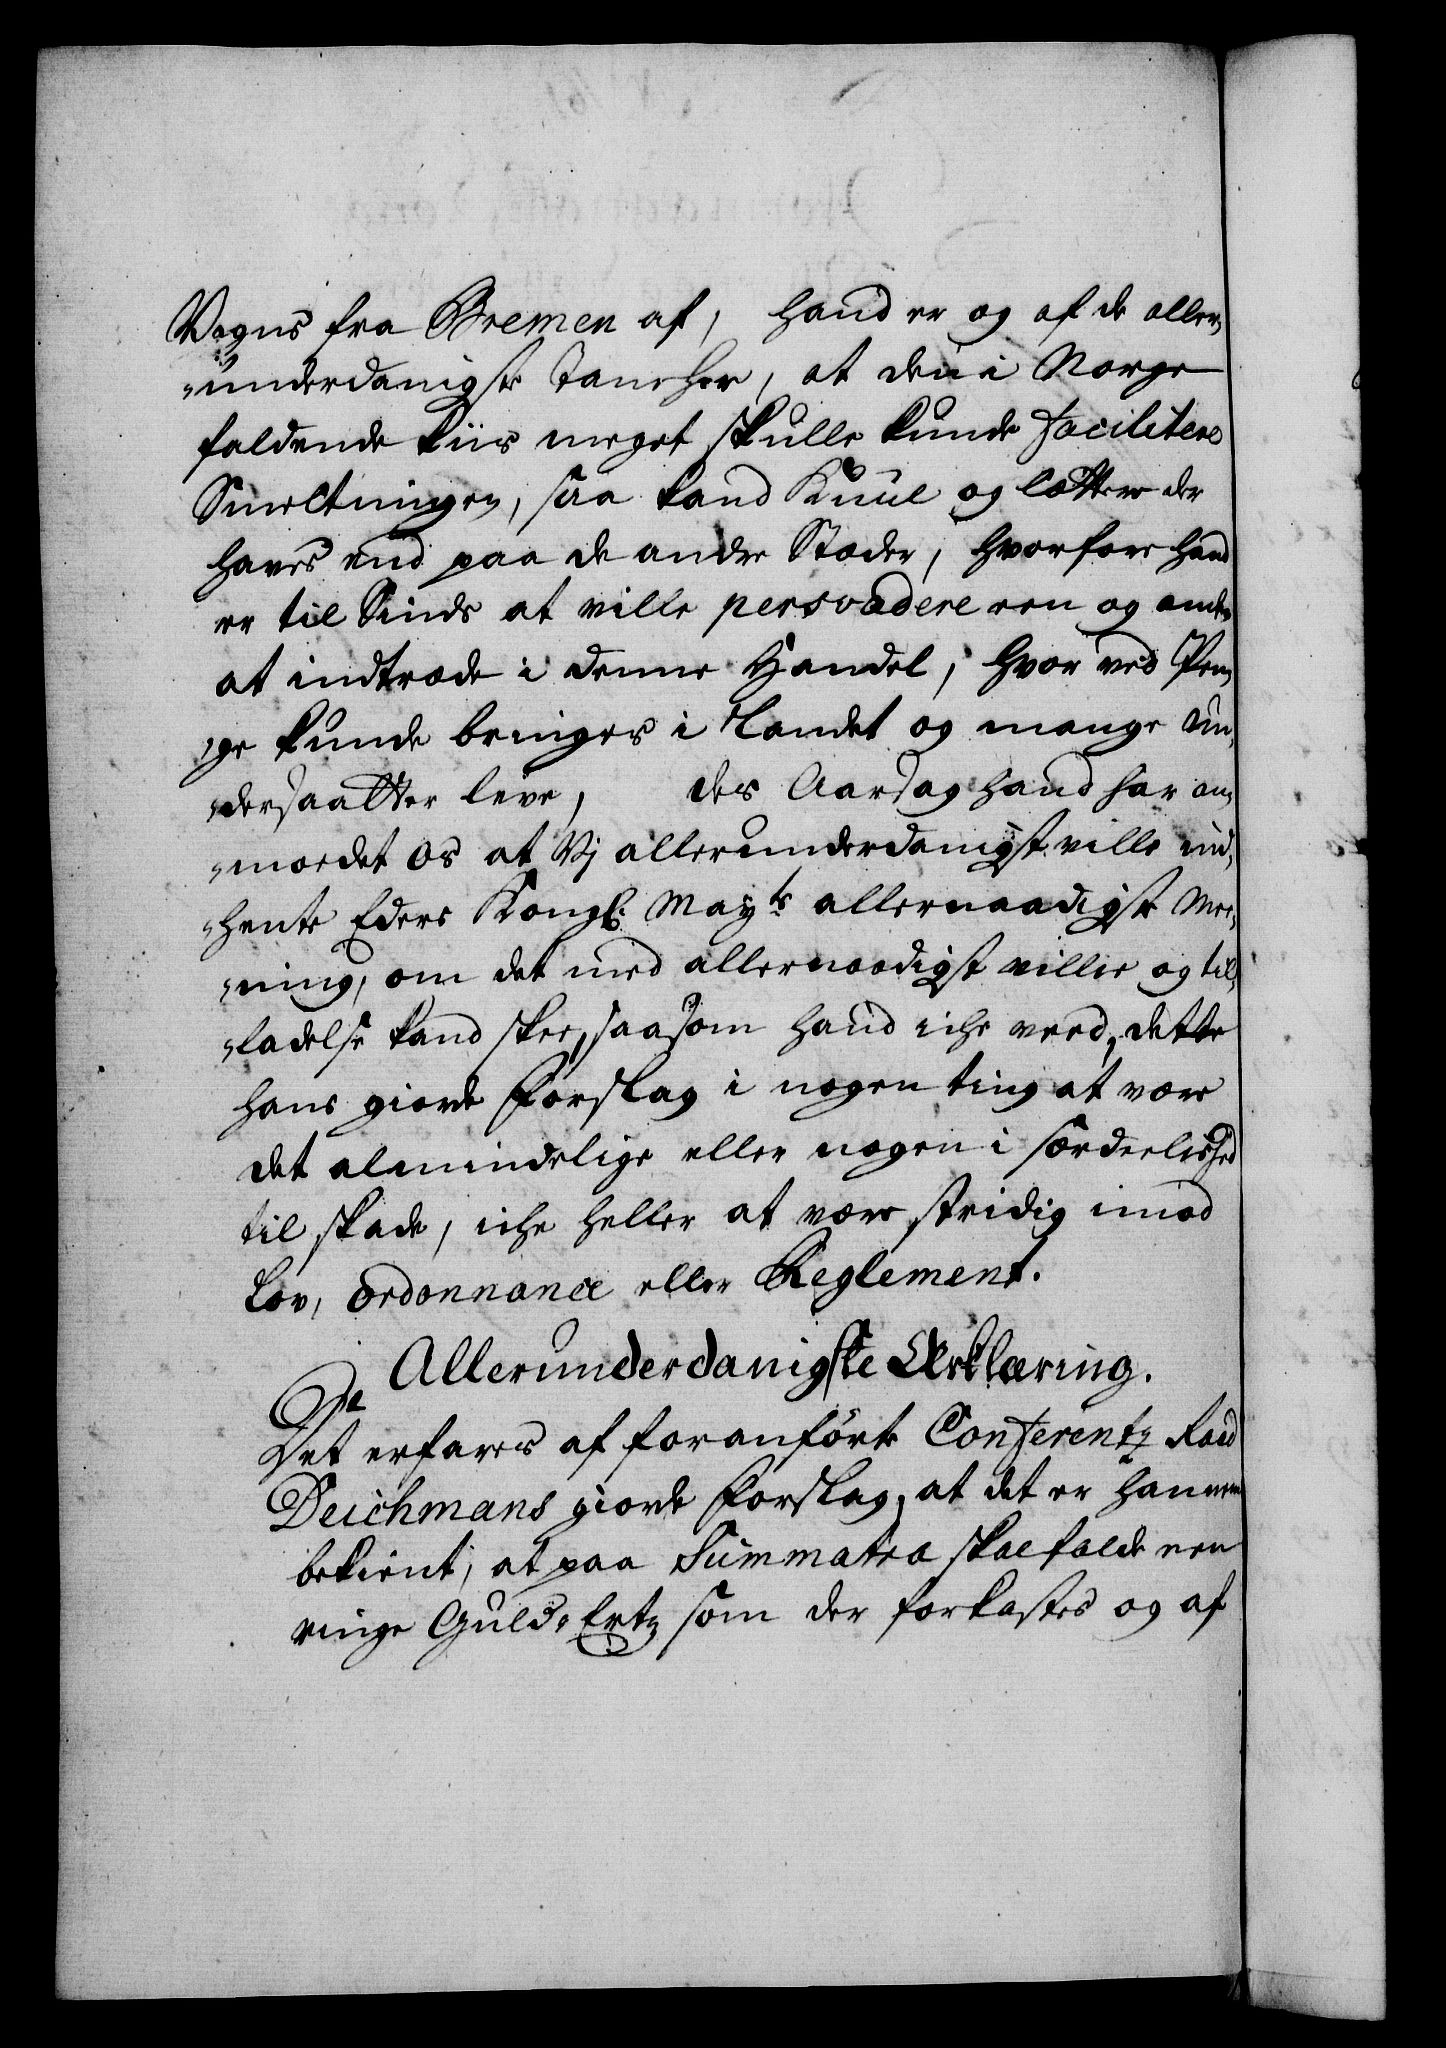 Vogns fra Bremen af, hand er og af de aller-
-underdanigste Tancher, at den i Norge
faldende Kiis meget skulle kunde facilitere
Smeltningen, saa kand Kuul og lættere der
haves end paa de andre Stæder, hvorfore hand
er til Sinds at ville persvadere een og anden
at indtræde i denne Handel, hvor ved Pen-
-ge kunde bringes i Landet og mange Un-
-dersaatter leve, des Aarsag hand har an-
-moedet os at Vj allerunderdanigst ville ind-
-hente Eders Kongl: Mayts allernaadigste Mee-
-ning, om det med allernaadigst villie og till-
-ladelse kand skee, saasom hand iche veed, dette
hans giorde Forslag i nogen ting at være
det almindelige eller nogen i særdeelished
til skade, iche heller at være stridig imod
Lov, ordonnance eller Reglement.
Allerunderdanigste Erklæring.
Det erfares af foranførte Conferentz Raad
Deichmans giorde Forslag, at det er hannem
bekient, at paa Summatra skal falde een
ringe Guld-Ertz som der forkastes og af